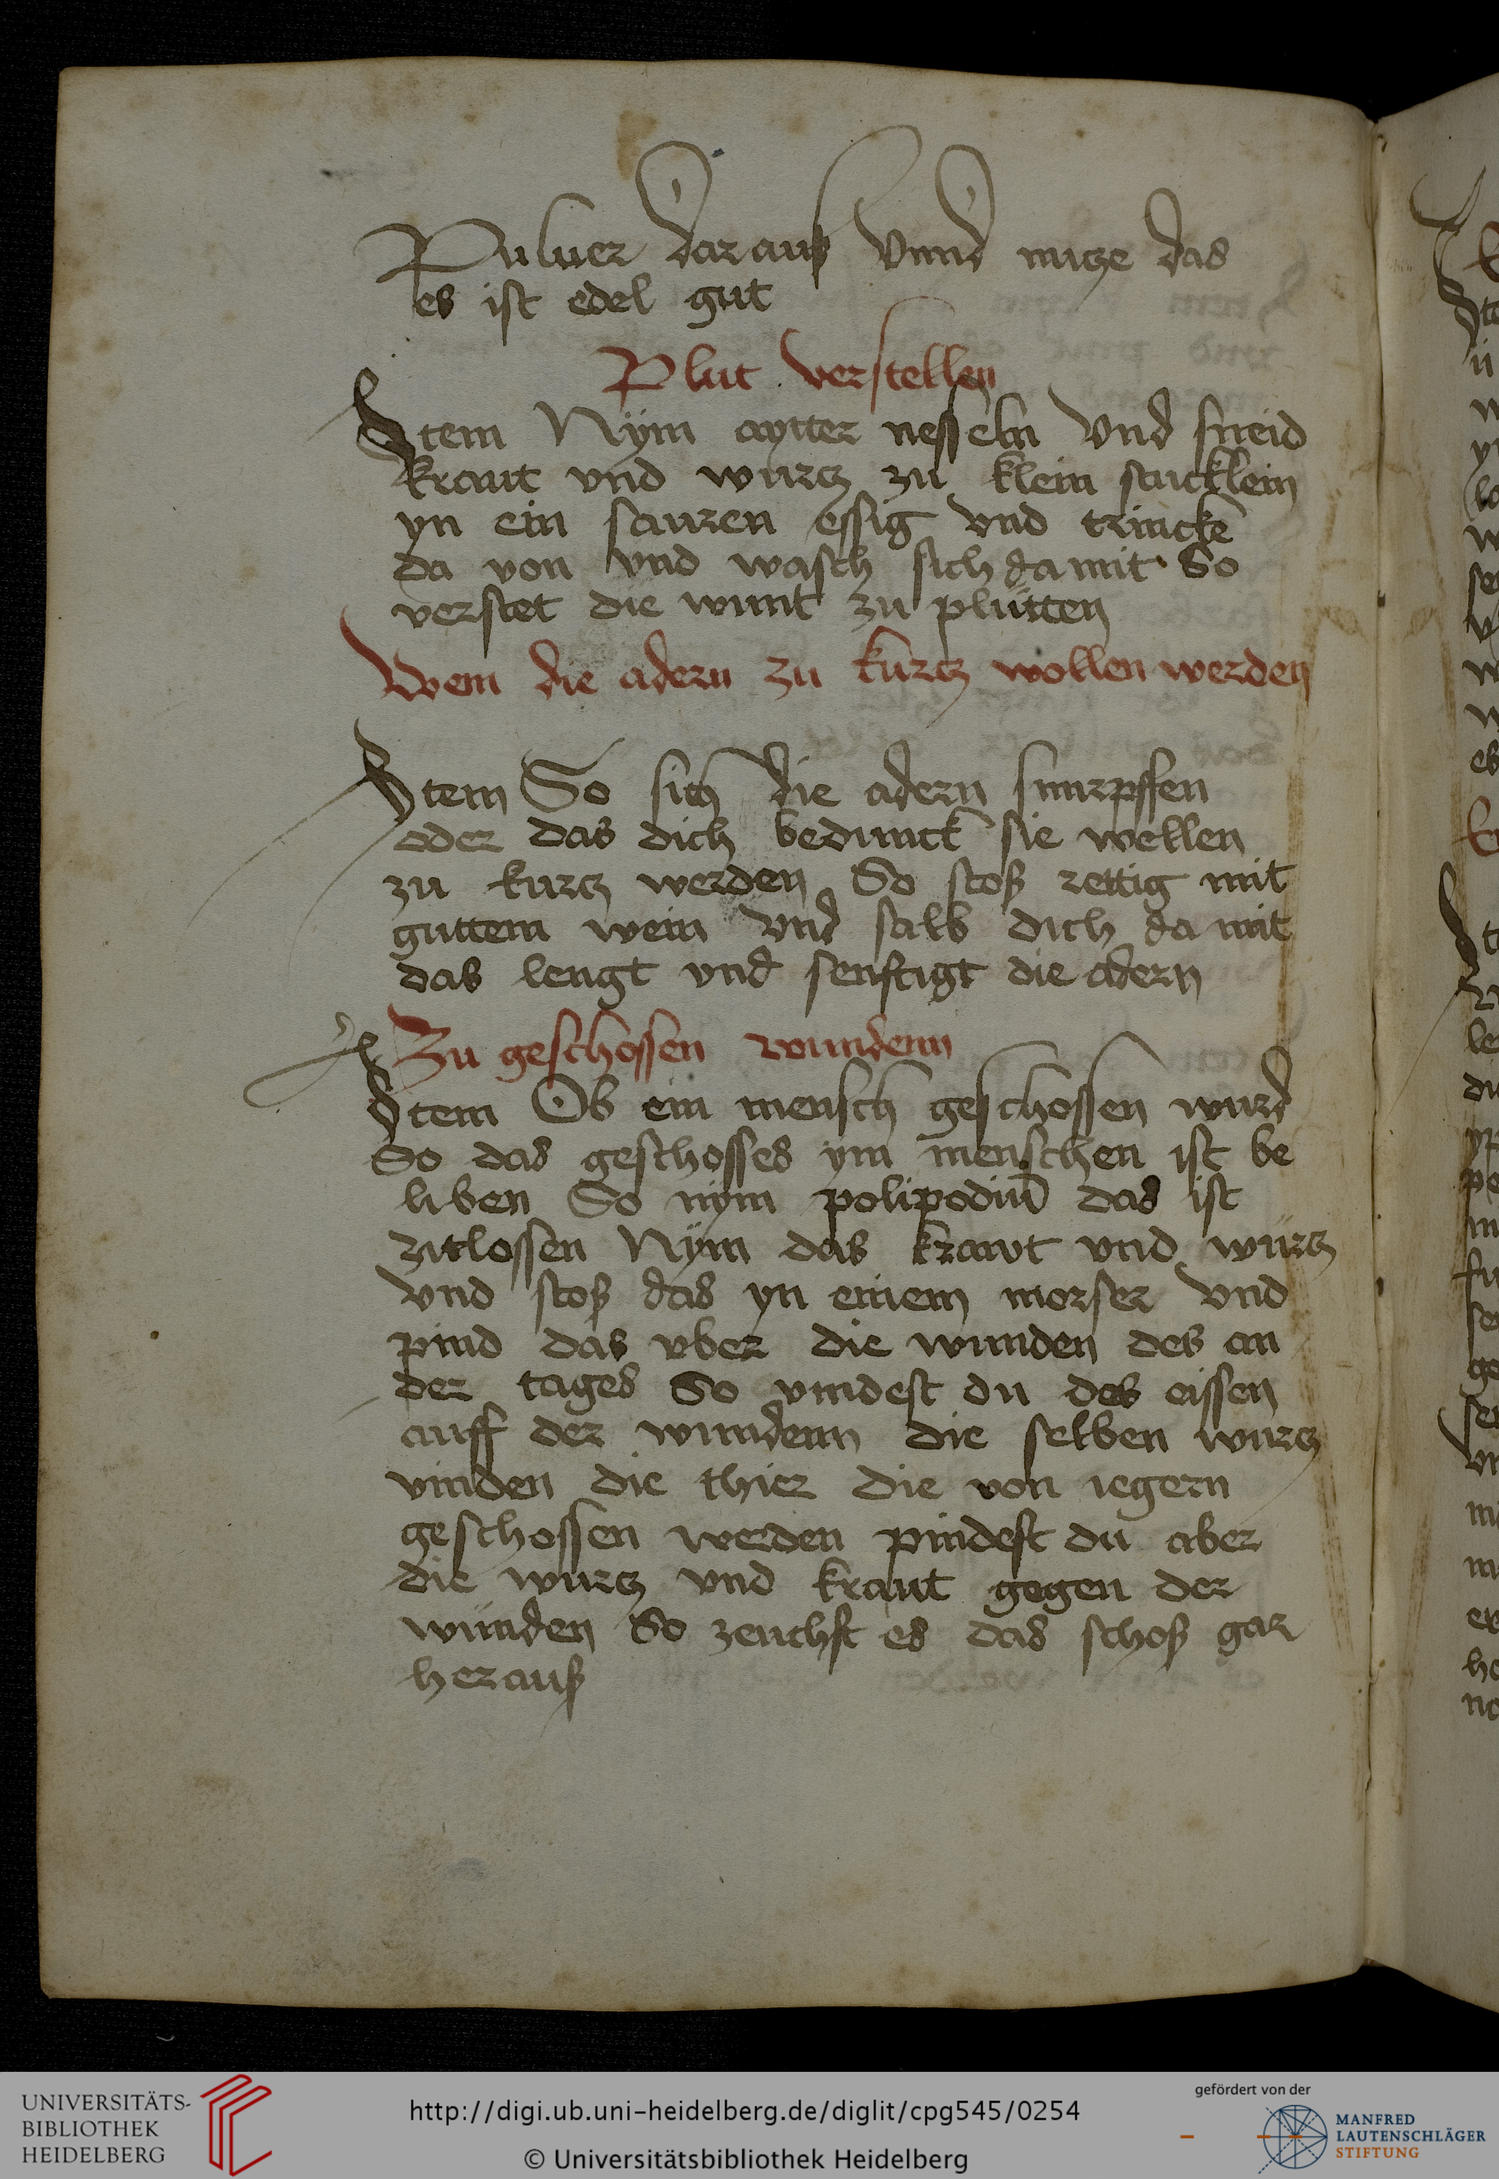 Puluer darauß Vnnd nutze das
es ist edel gut
Plut verstellen
Item Nÿm aytter nesseln Vnd sneid
kraut vnd wurtz zu klein stucklein
yn ein sauren essig vnd trincke
da von vnd wasch sich damit So
verstet die wunt zu plütten
Wem die adern zu kurtz wollen werden
Item So sich die adern smurpffen
oder das dich bedunck sie wellen
zu kurtz werden So stoß rettig mit
guttem wein vnd salb dich da mit
das lengt vnd senftigt die adern
Zu geschossen wundenn
Item Ob ein mensch geschossen wurd
So das geschosses ym menschen ist be
liben So nym polipodiū das ist
zitlossen Nÿm das krawt vnd würtz
vnd stoß das yn einem morser vnd
pind das vber die wunden des an
der tages So vindest du des eissen
auff der wundenn die selben wurtz
vinden die thier die von iegern
geschossen werden pindest du aber
die wurtz vnd kraut gegen der
wunden So zeuchst es das schoß gar
herauß
UNIVERSITÄTS-
BIBLIOTHEK
HEIDELBERG
http://digi.ub.uni-heidelberg.de/diglit/cpg545/0254
© Universitätsbibliothek Heidelberg
gefördert von der
MANFRED
LAUTENSCHLÄGER
STIFTUNG